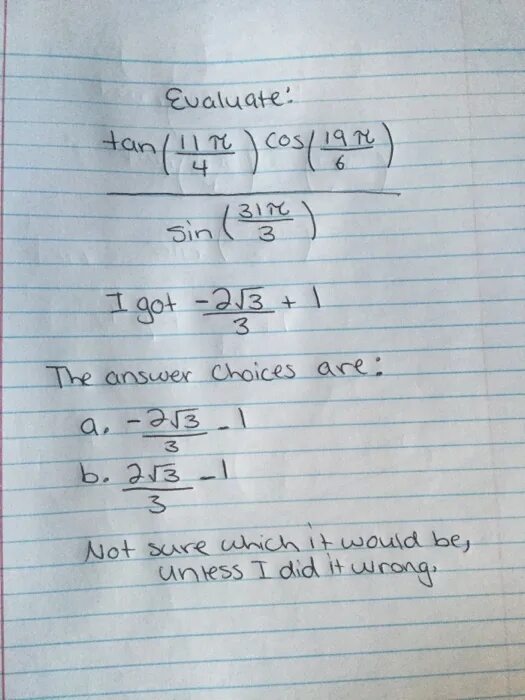 Evaluate:
tan(11π/4) cos(19π/6)
sin(31π/3)
I got -2√3/3 + 1
The answer choices are:
a. -2√3/3 - 1
b. 2√3/3 - 1
Not sure which it would be,
unless I did it wrong.